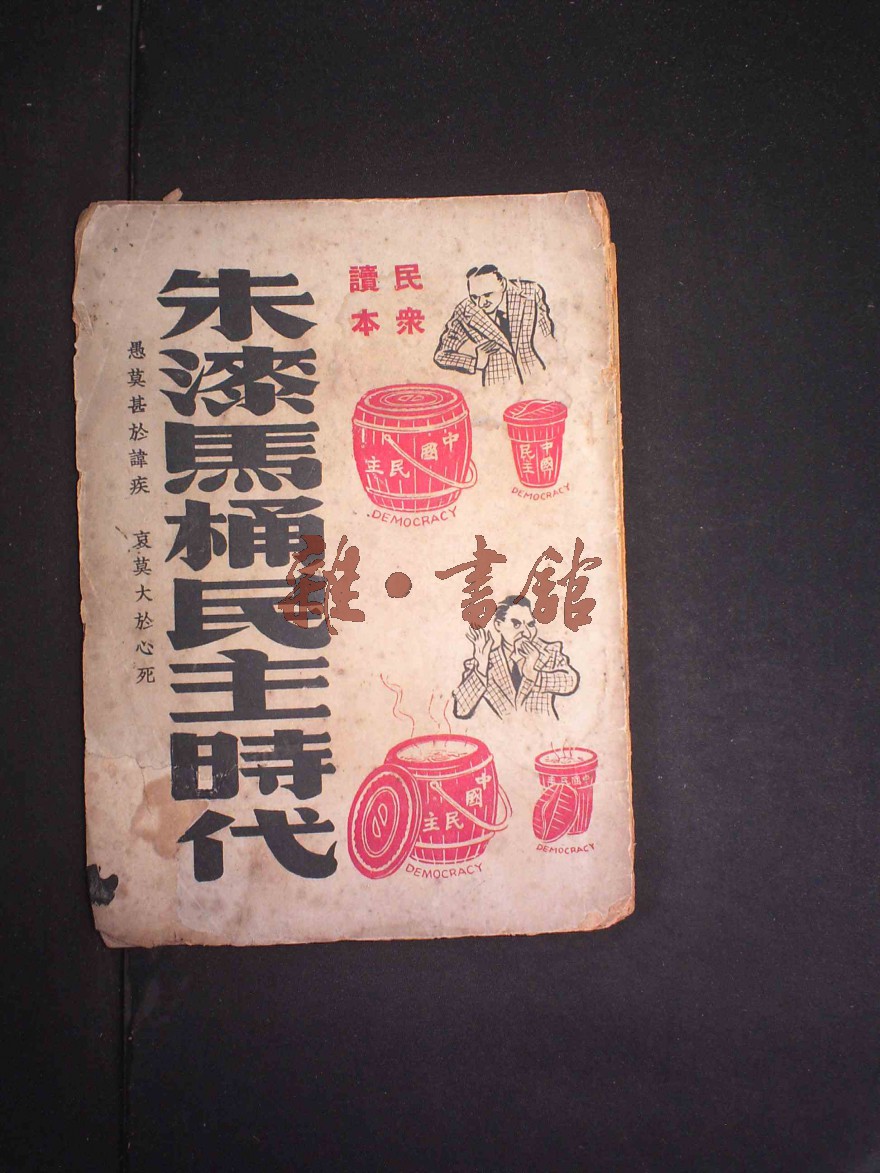 民衆
讀本
朱漆馬桶民主時代
愚莫甚於諱疾 哀莫大於心死
中國民主
DEMOCRACY
中國
民主
DEMOCRACY
雜·書館
中國
民主
DEMOCRACY
中國民主
DEMOCRACY